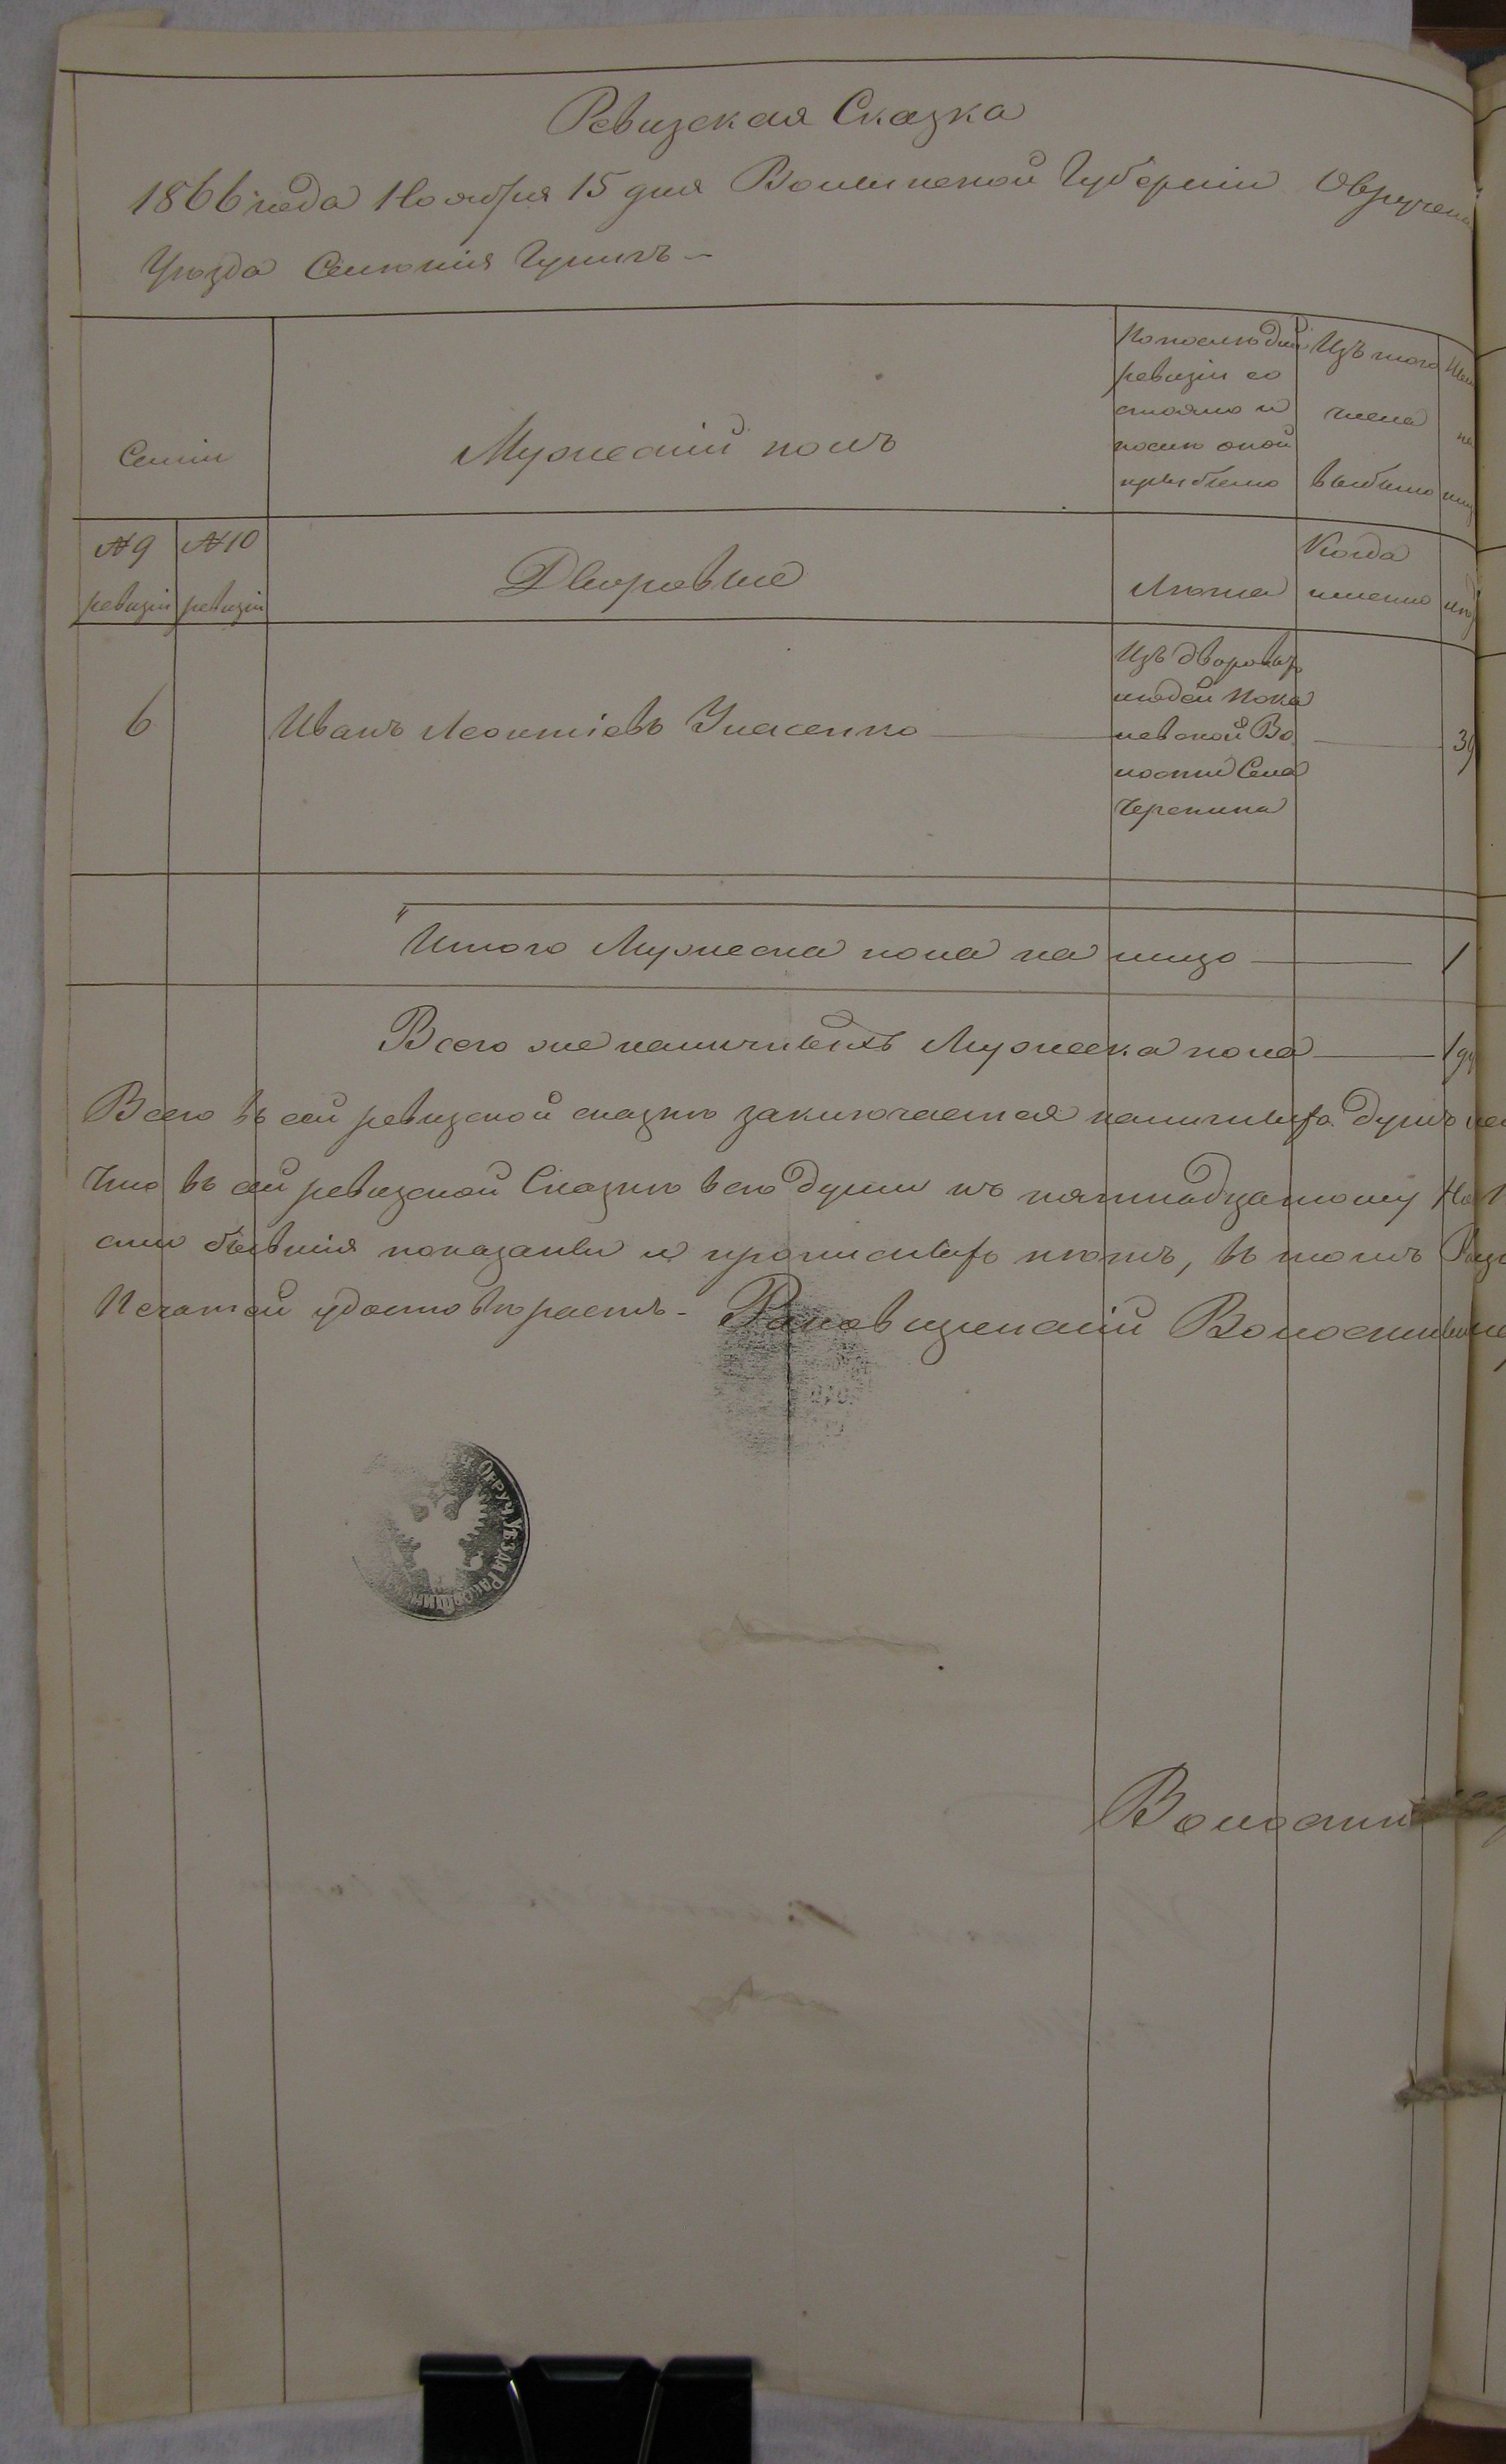 Ревизская Сказка
1866 года Ноября 15 дня Волынской Губерніи Овручск
Уѣзда Селенія
Семіи
Мужескій полъ
По послѣдней
ревизіи со
стояло и
послѣ оной
прибыло
Изъ того
числа
выбыло
№ 9
ревизіи
№ 10
ревизіи
Дворовые
Лѣта
Когда
именно
6
Иванъ Леонтіевъ
Изъ дворовыхъ
людей
невской Во
лости Села
39
Итого Мужеска пола на лицо 1
Всего же наличныхъ Мужеска пола 1
Всего въ сей ревизской сказкѣ заключается наличныхъ душъ
Что въ сей ревизской Сказкѣ всѣ души къ пятнадцатому
сіи бывшія показаны и прописныхъ нѣтъ, въ томъ
Печатей удостовѣряетъ - Раковщинскій Волостный
ОВРУЧ. УѢЗДА
Волостн